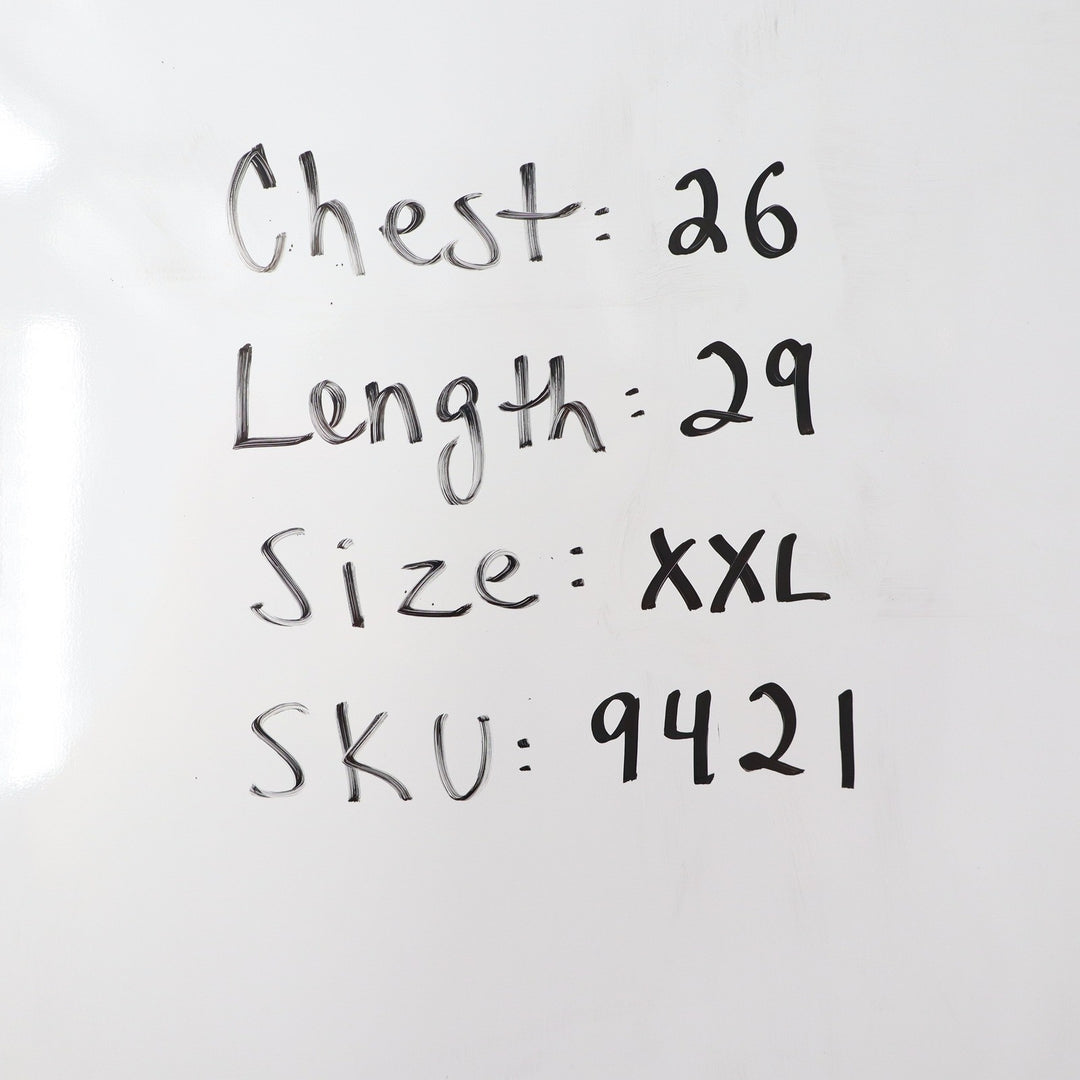 Chest: 26
Length: 29
Size: XXL
SKU: 9421